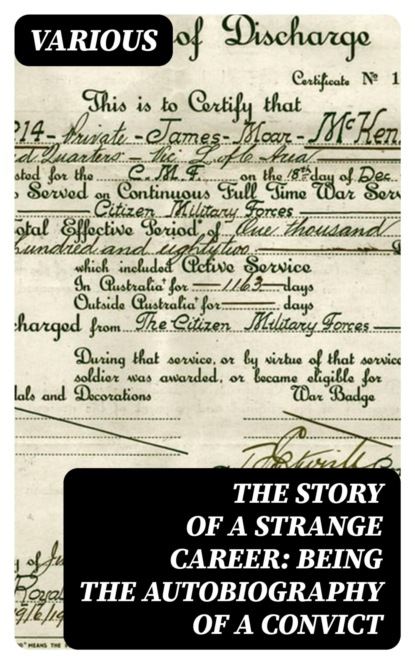 VARIOUS
of Discharge
Certificate Nº 1
This is to Certify that
14 - Private - James - Moar - McKen
d Quarters - Vic L of C Area
sted for the C.M.F. on the 18th day of Dec.
Served on Continuous Full Time War Serv
Citizen Military Forces
otal Effective Period of One thousand
hundred and eightytwo
which included Active Service
In Australia for 1163 days
Outside Australia for days
harged from The Citizen Military Forces
During that service, or by virtue of that service
soldier was awarded, or became eligible for
als and Decorations War Badge
THE STORY
OF A STRANGE
CAREER: BEING
THE AUTOBIOGRAPHY
OF A CONVICT
of Ju
Royal
9/6/19
" MEANS THE